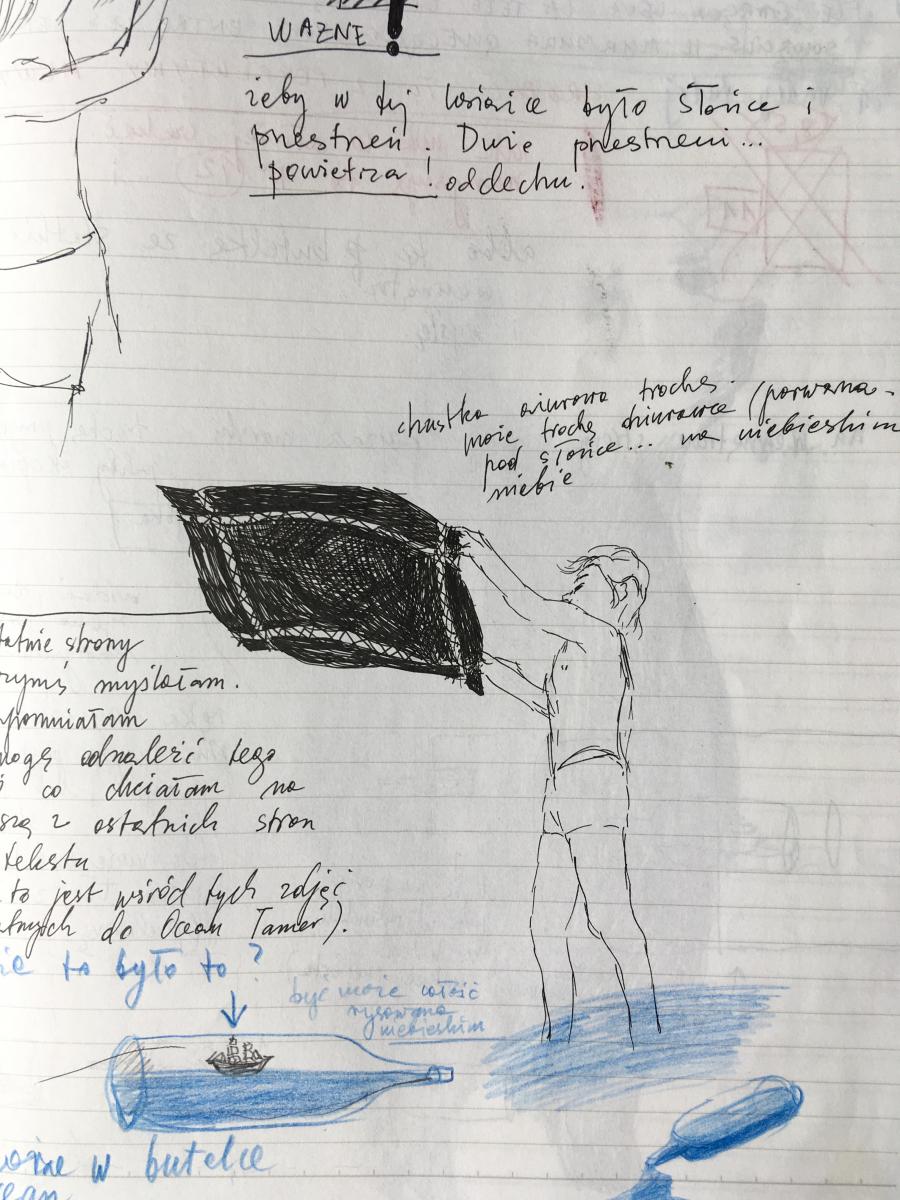 WAZNE!
żeby w tej książce było słońce i
przestrzeń. Dwie przestrzeni...
powietrza! oddechu.
chustka ażurowa trochę.
może trochę dziurawa (porwana -
pod słońce... na niebieskim
niebie
tatnie strony
rymś myślałam.
pomniałam
mogę odnaleźć tego
co chciałam na
szą z ostatnich stron
tekstu
to jest wśród tych zdjęć
atnych do Ocean Tamer).
ie to było to?
być może całość
rysowana
niebieskim
w butelce